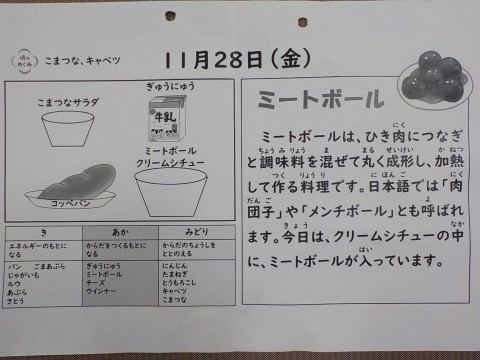 境のめぐみ
こまつな、キャベツ
11月28日(金)
こまつなサラダ
ぎゅうにゅう
牛乳
ミートボール
クリームシチュー
コッペパン
き
あか
みどり
エネルギーのもとに
なる
からだをつくるもとに
なる
からだのちょうしを
ととのえる
パン ごまあぶら
じゃがいも
ルウ
あぶら
さとう
ぎゅうにゅう
ミートボール
チーズ
ウインナー
にんじん
たまねぎ
とうもろこし
キャベツ
こまつな
ミートボール
ミートボールは、ひき肉につなぎ
と調味料を混ぜて丸く成形し、加熱
して作る料理です。日本語では「肉
団子」や「メンチボール」とも呼ばれ
ます。今日は、クリームシチューの中
に、ミートボールが入っています。